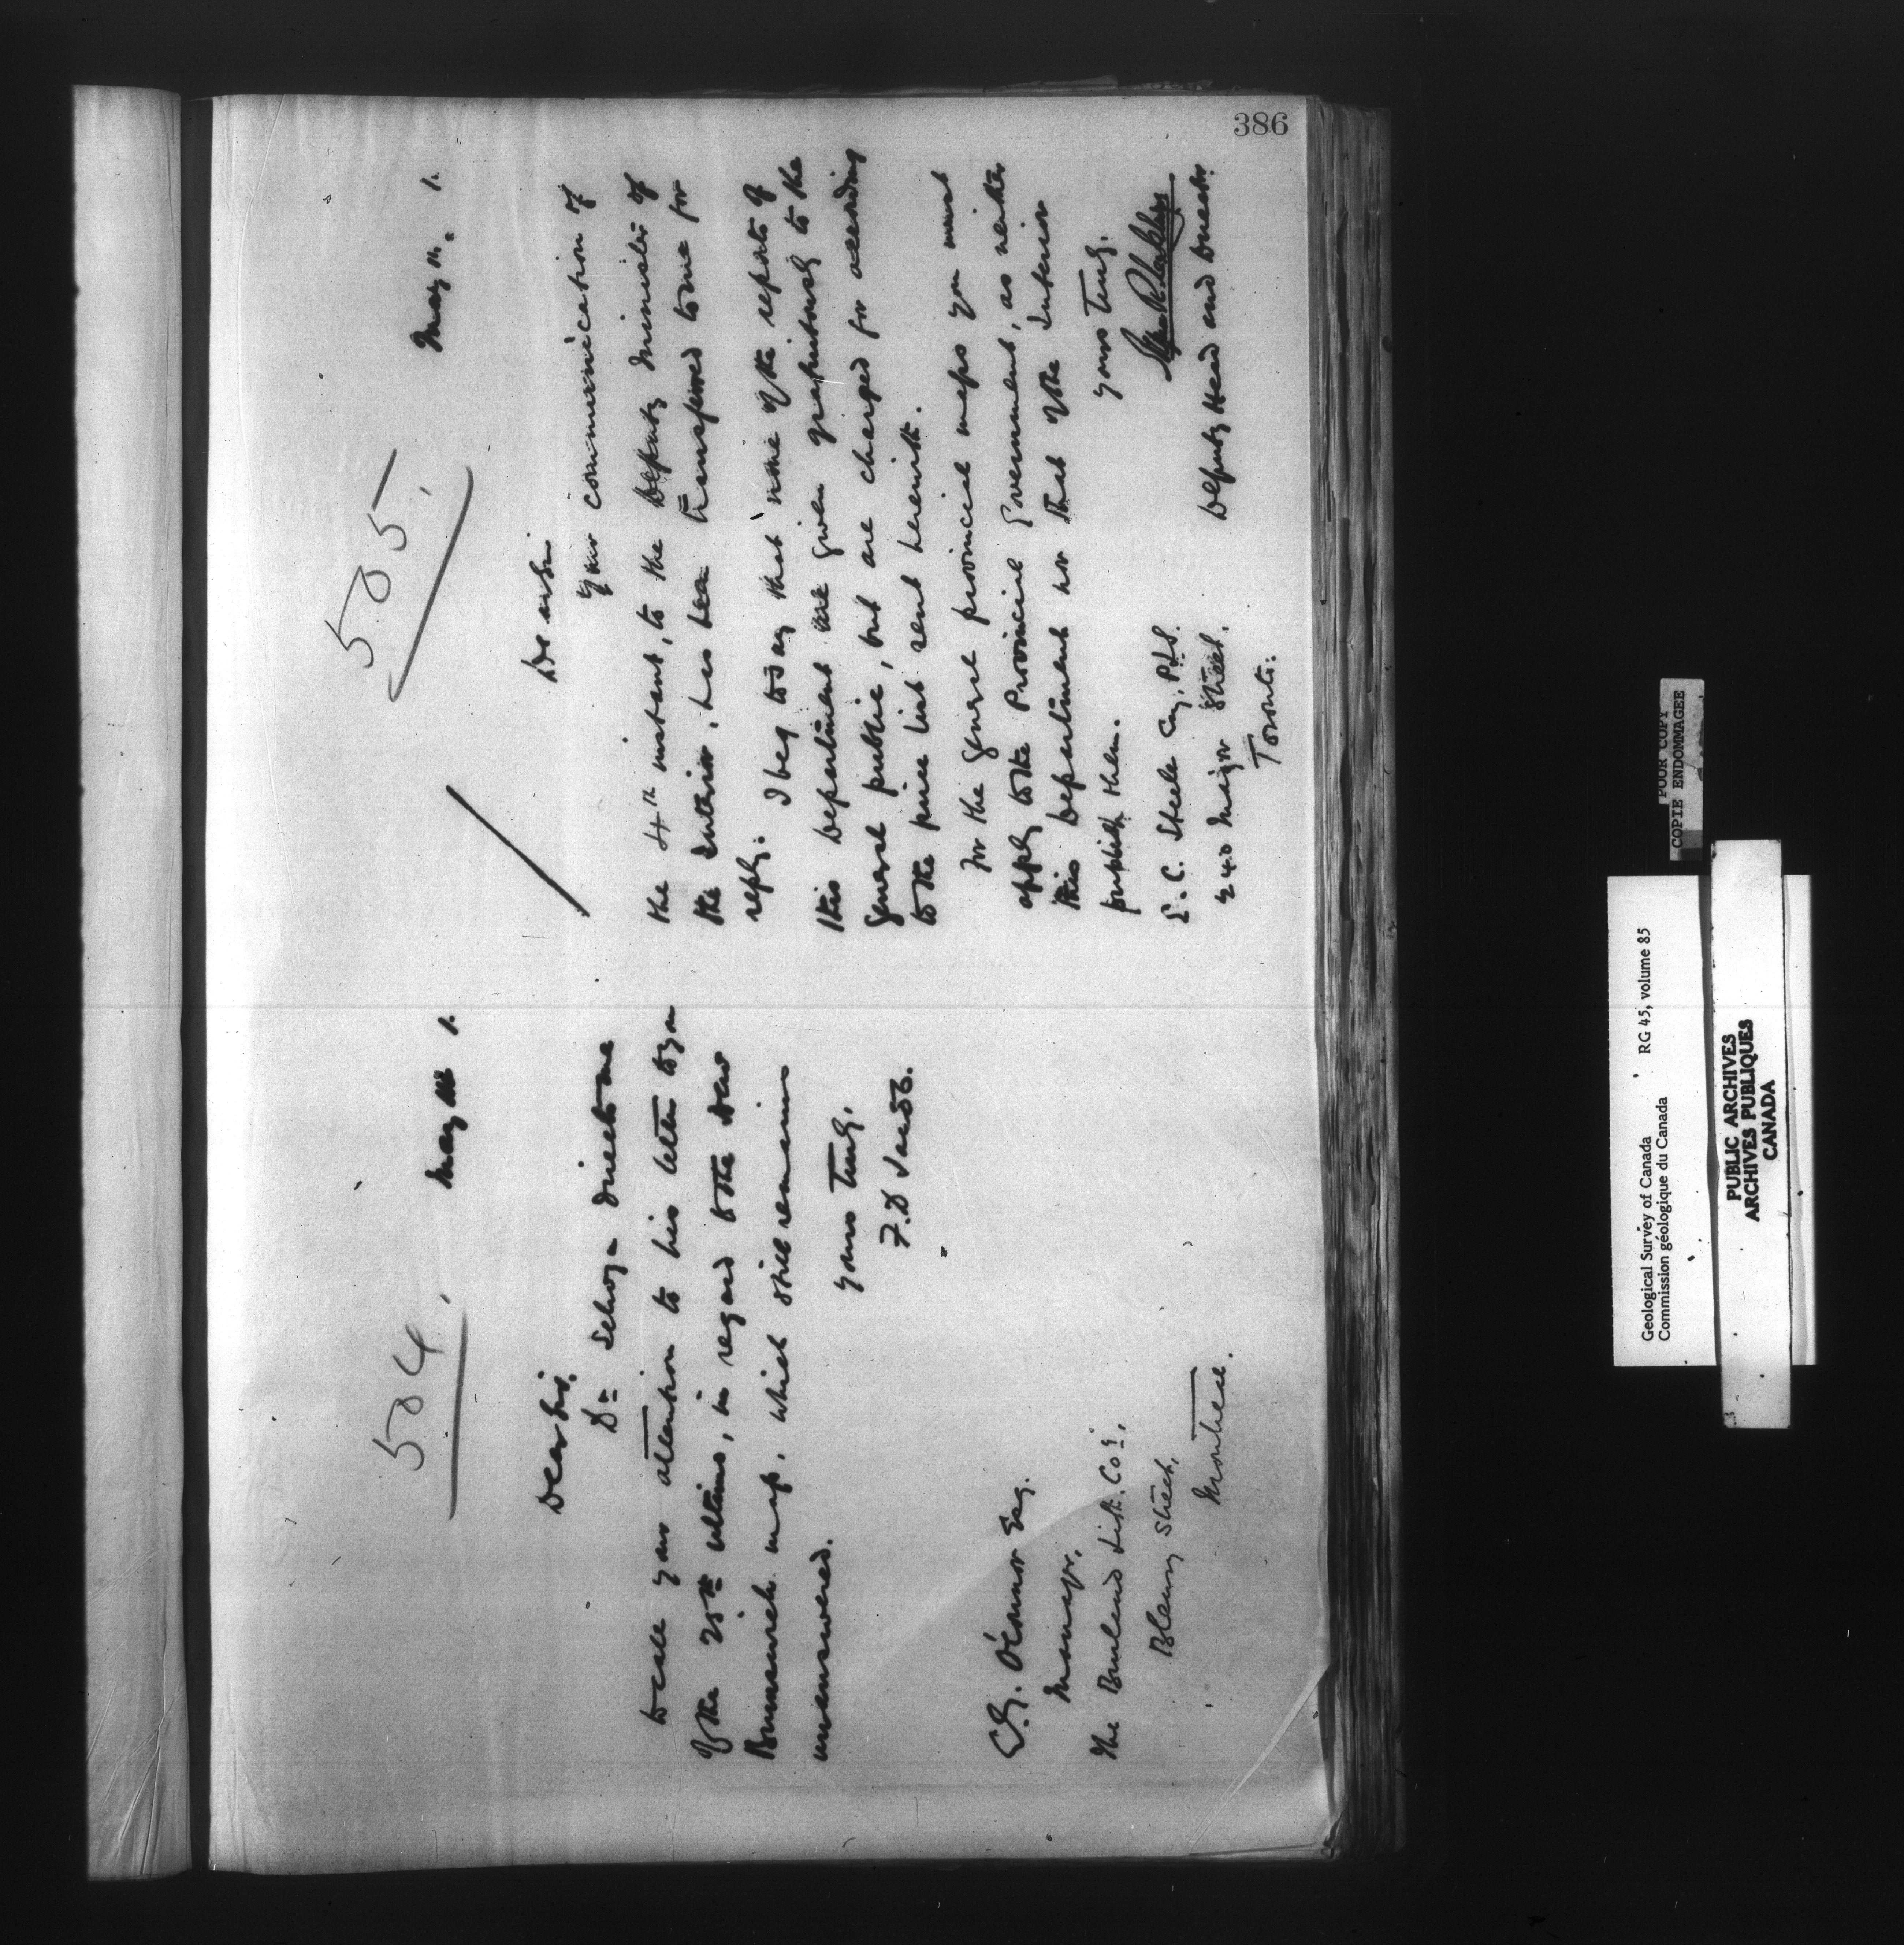 386
504.
May 1.
Dear Sir,
Dr Selwyn directs me
to call your attention to his letter to you
of the 25th ultimo, in regard to the New
Brunswick map, which still remains
unanswered.
Yours truly,
F.D.
O'Connor Esq.
Manager,
The Burland Lith. Co.,
Bleury Street,
Montreal.
505.
May 11. 1.
Dear Sir
Your communication of
the 4th instant, to the Deputy Minister of
the Interior, has been transferred to me for
reply. I beg to say that none of the reports of
this Department are given gratuitously to the
general public, but are charged for according
to the price list sent herewith.
For the general provincial maps you must
apply to the Provincial Government, as neither
this Department nor that of the Interior
publish them.
Yours truly,
Deputy Head and Director.
E. C. Steele Esq. P.L.S.
240 Major Street,
Toronto.
POOR COPY
COPIE ENDOMMAGEE
Geological Survey of Canada RG 45, volume 85
Commission géologique du Canada
PUBLIC ARCHIVES
ARCHIVES PUBLIQUES
CANADA